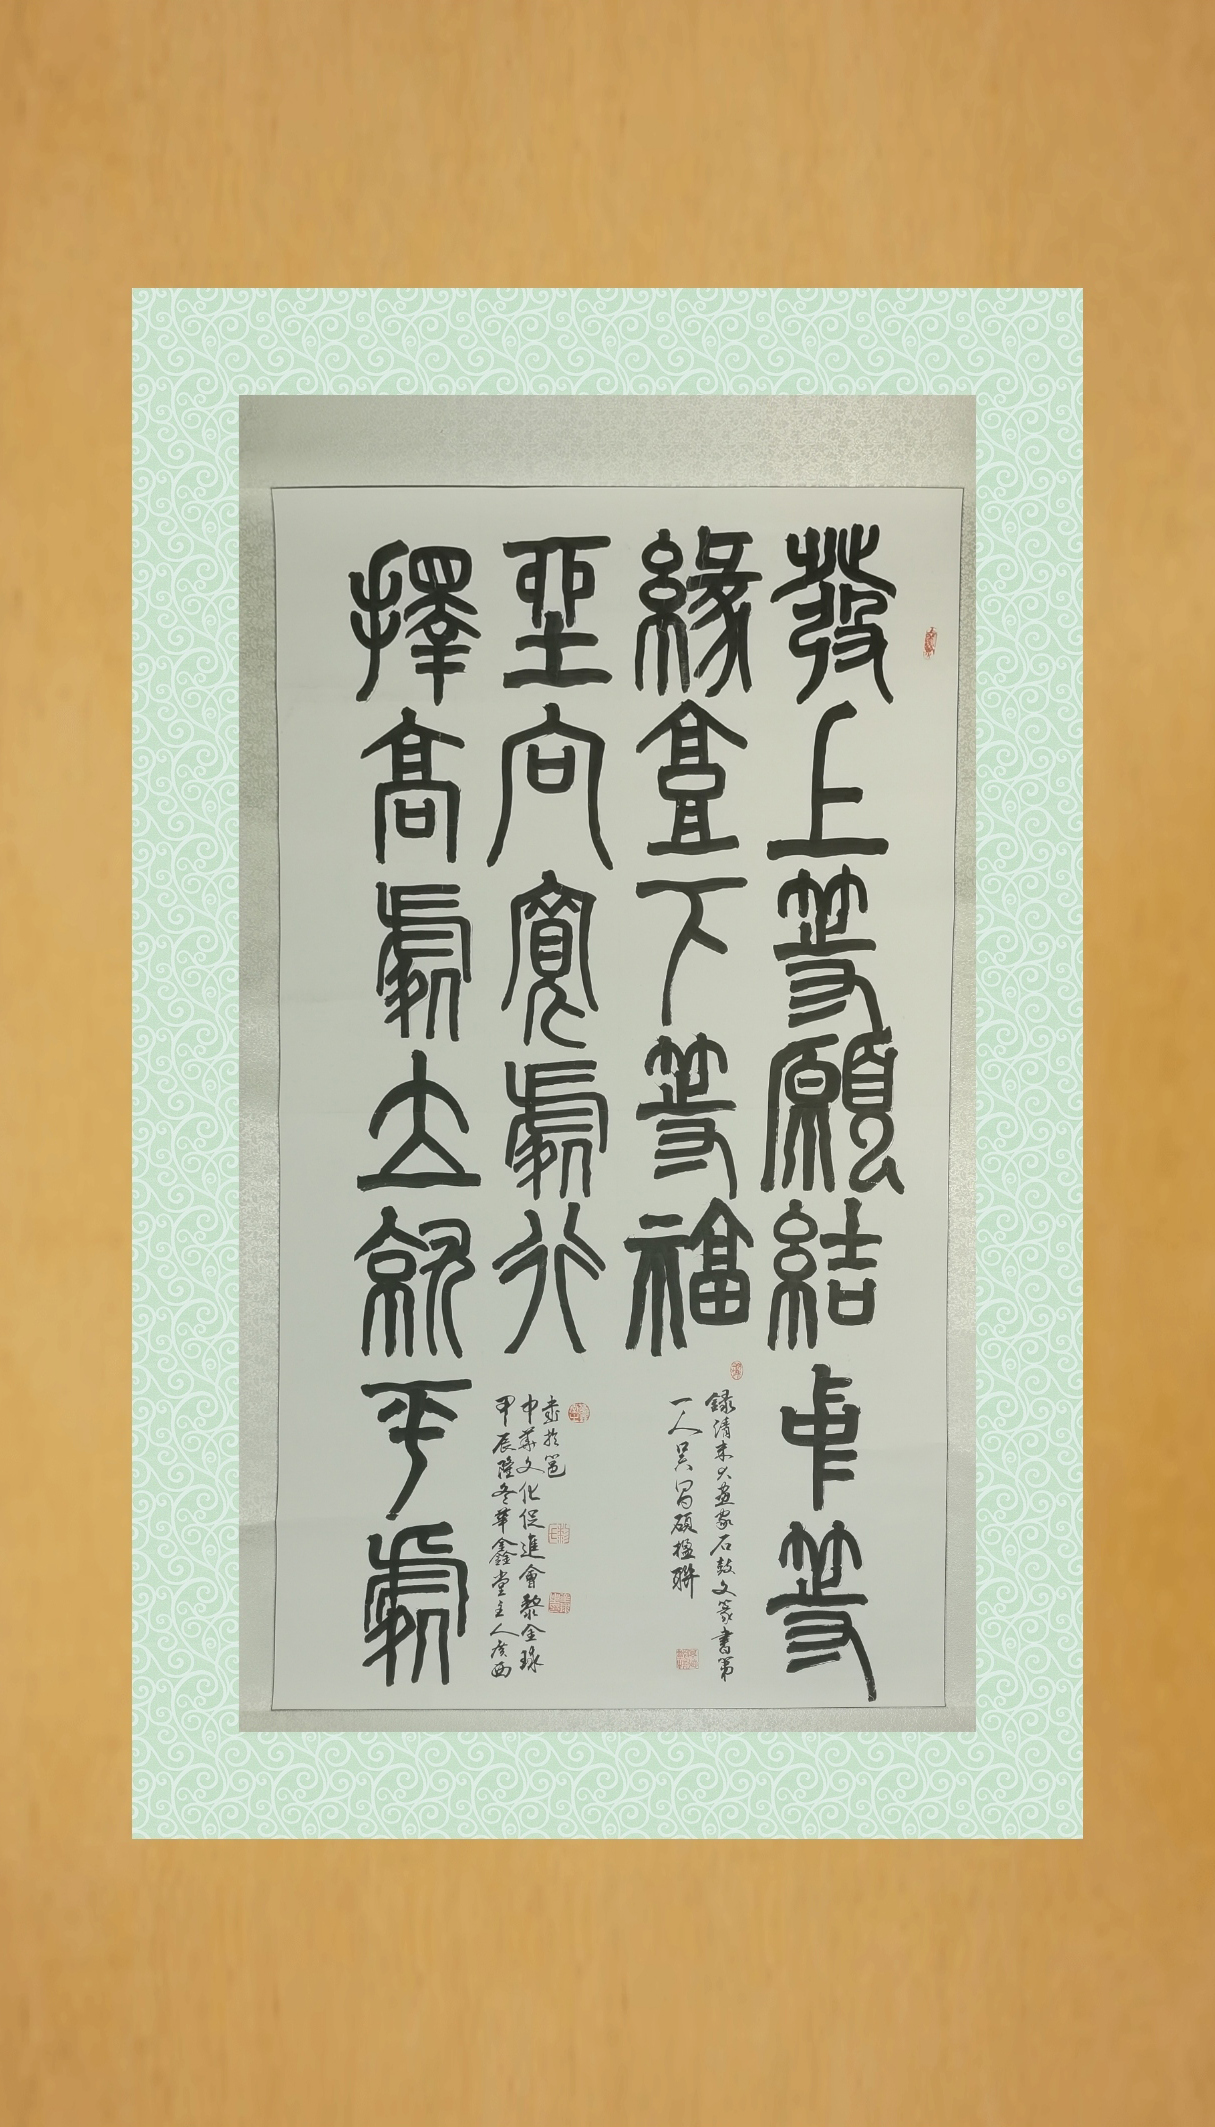 發上等願結中等
緣享下等福
擇高處立就平處
坐向寬處行
錄清末大畫家石鼓文篆書第
一人吳昌碩楹聯
甲辰隆冬華鑫堂主人廣西
中華文化促進會黎金球
書於邕